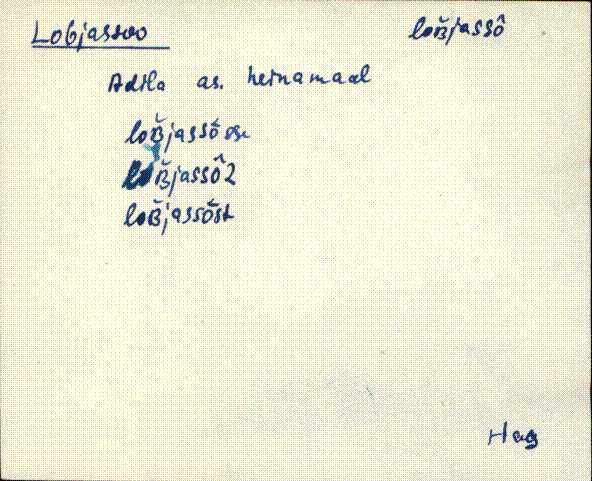 Lobjassoo loʙ̆jassô
Adila as. heinamaal
loʙ̆jassŏsse
loʙ̆jassô2
loʙ̆jassŏst
Hag